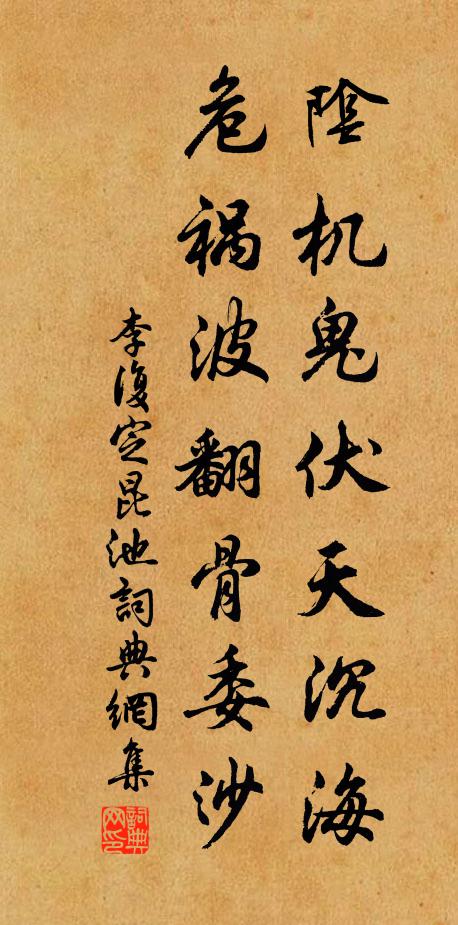 陰机鬼伏天沉海
危祸波翻骨委沙
李復定昆池詞典網集
詞典网印